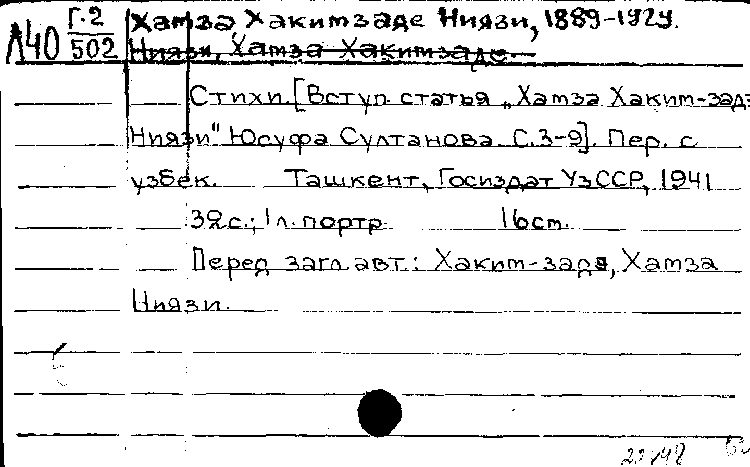 Л40 Г.2/502 Хамза Хакимзаде Ниязи, 1889-1929.
Ниязи, Хамза Хакимзаде.
Стихи. [Вступ. статья „Хамза Хаким-задэ
Ниязи" Юсуфа Султанова. С.3-9]. Пер. с
узбек. Ташкент, Госиздат УзССР, 1941
32с.; 1 л. портр. 16см.
Перед загл. авт.: Хаким-задэ, Хамза
Ниязи.